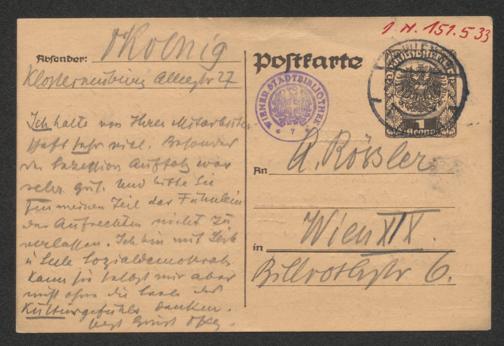 Absender: O Koenig
Klosterneuburg Allegstr 27
Ich halte von Ihrer Mitarbeiter-
schaft sehr viel. Besonders
der Sezession Aufsatz war
sehr gut. Und bitte Sie
für meinen Teil das Fähnlein
des Aufrechten nicht zu
verlassen. Ich bin mit Leib
u Seele Sozialdemokrat
kann sie selbst mir aber
nicht ohne die des
Kulturgefühls denken.
Postkarte
WIENER STADTBIBLIOTHEK
1
An A. Rössler
in Wien XIX.
Billrothstr 6.
I. N. 151.533